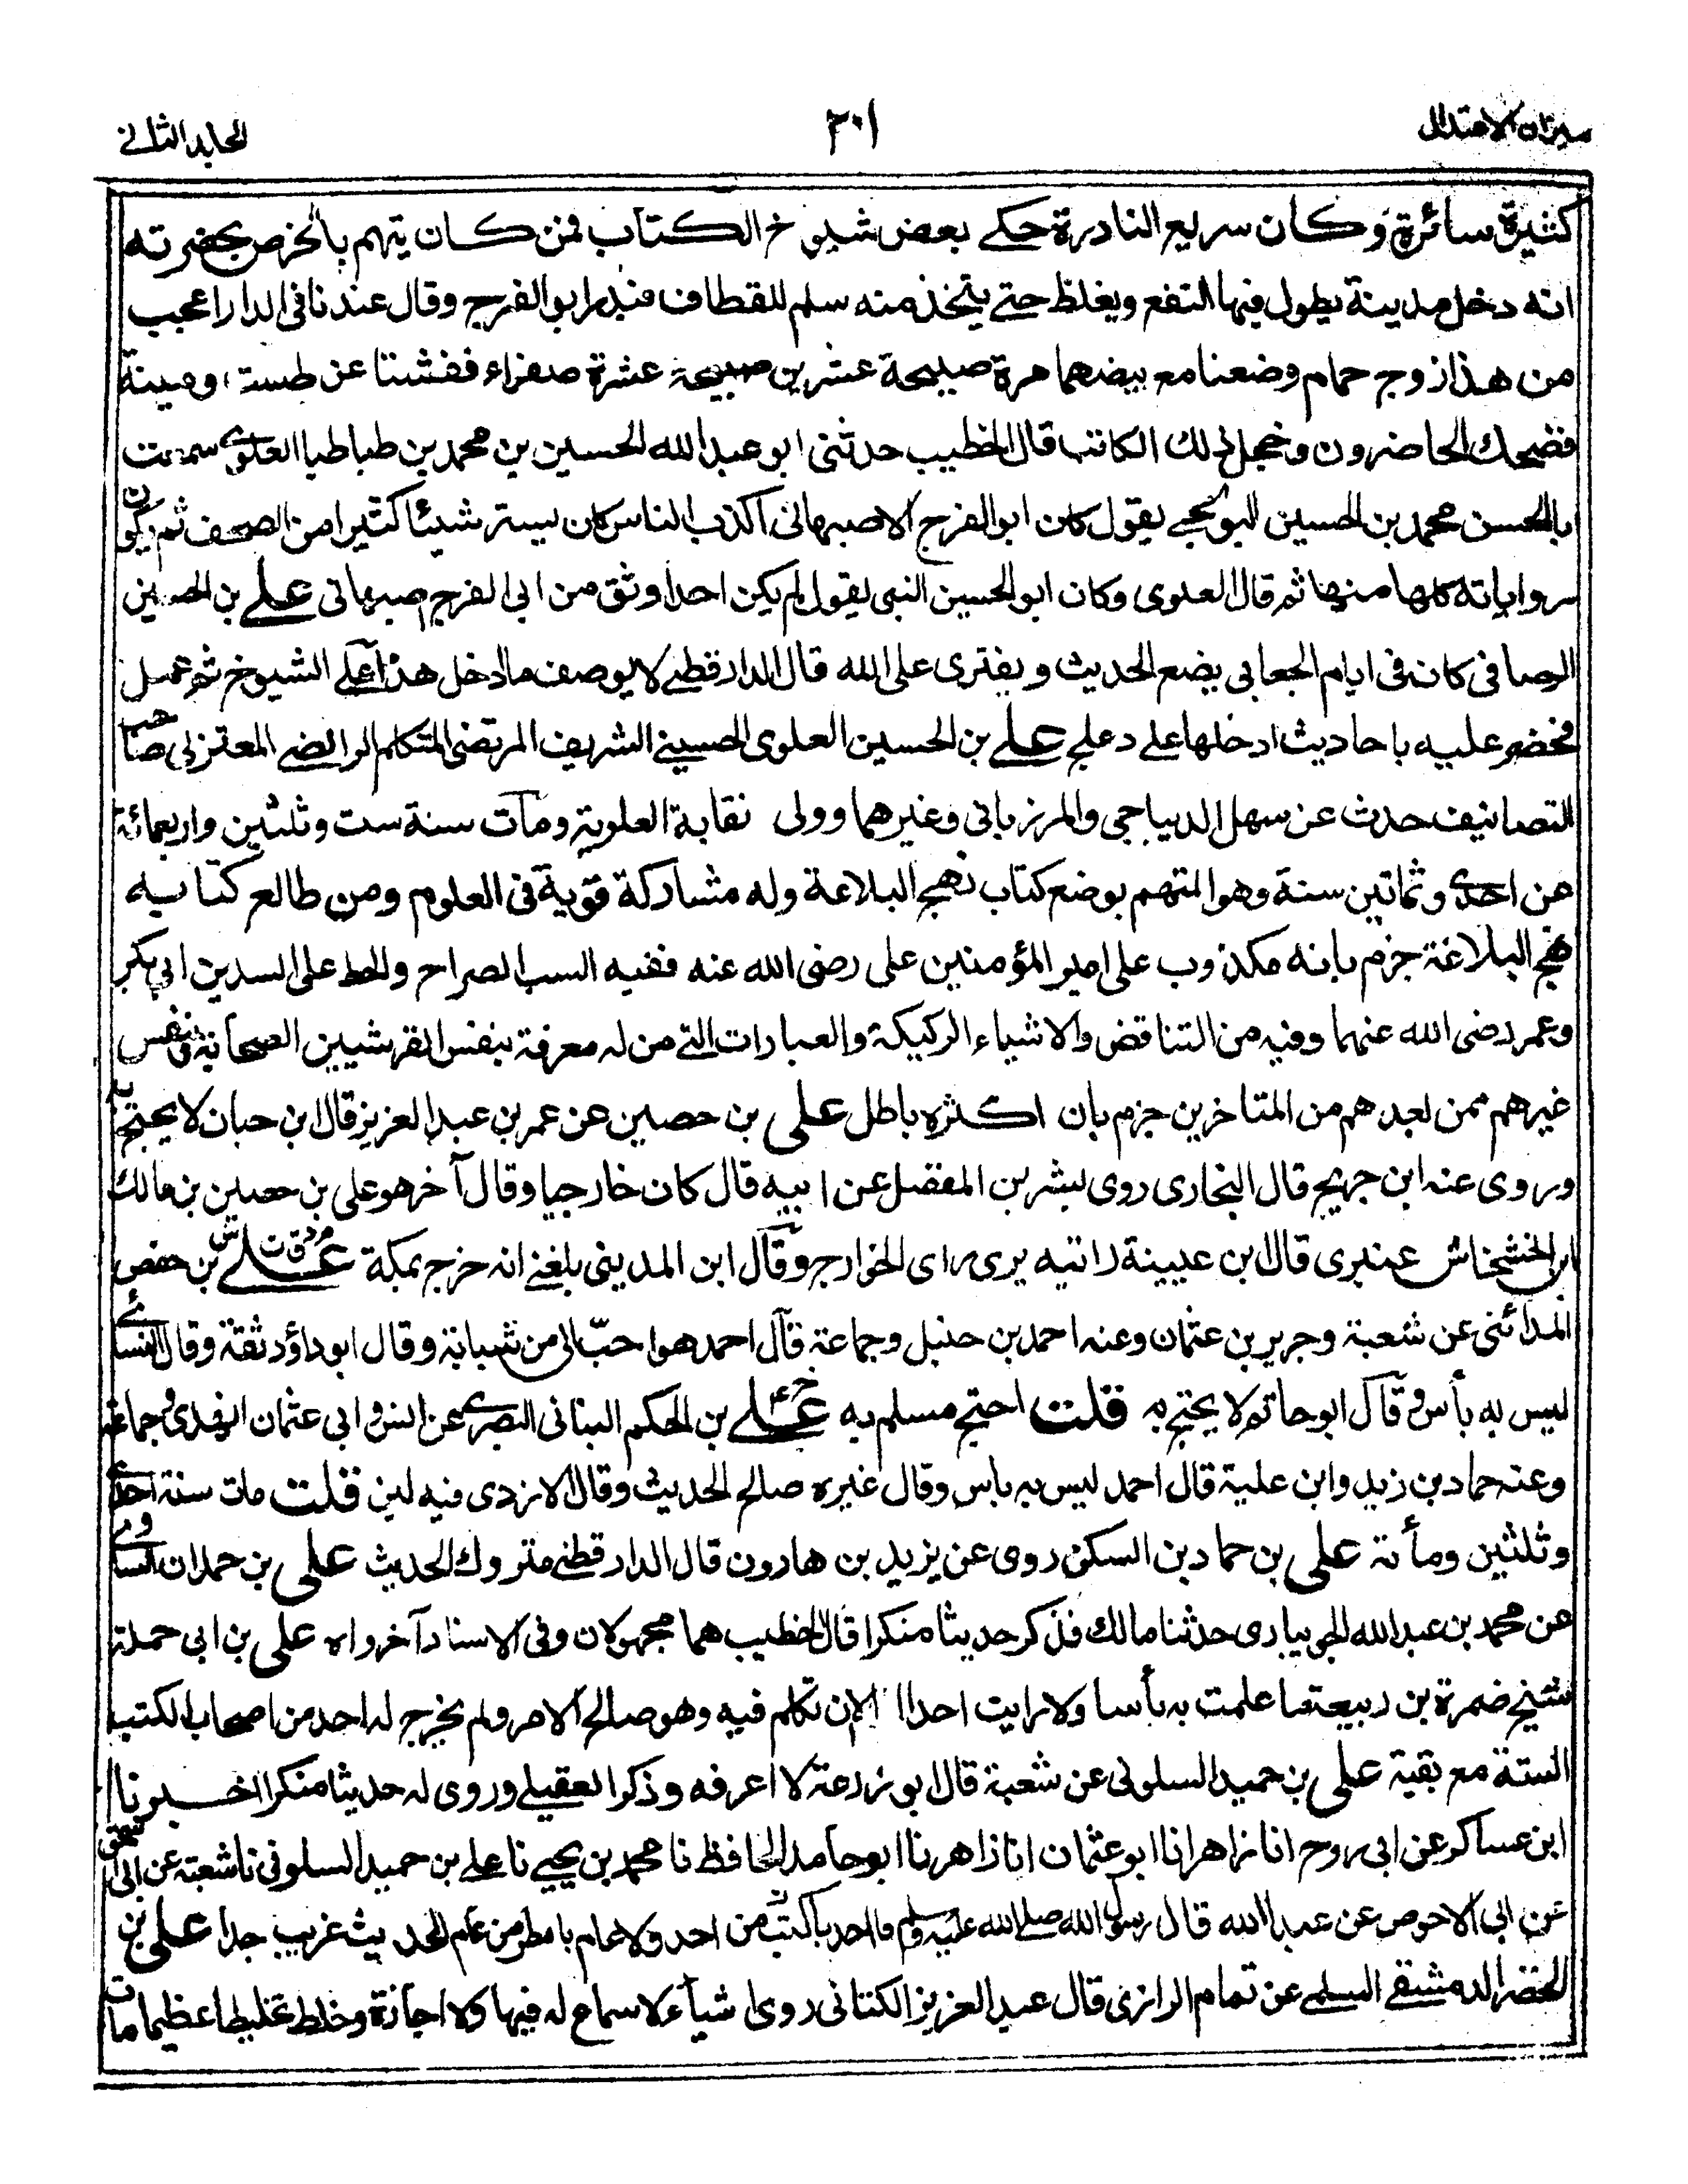 ميزان الاعتدال
٢٠١
المجلد الثاني
كثيرة سائرة وكان سريع النادرة حكى بعض شيوخ الكتاب فمن كان يتهم بالخرص بحضرته
انه دخل مدينة يطول فيها النفع ويغلظ حتى يتخذ منه سلم للقطاف فبدر ابو الفرج وقال عندنا في الدار اعجب
من هذا زوج حمام وضعنا مع بيضهما مرة صبيحة عشرين صبيحة عشرة صفراء ففشتا عن طست ومينة
فضحك الحاضرون وخجل لذلك الكاتب قال الخطيب حدثنى ابو عبد الله الحسين بن محمد بن طباطبا العلوى سمعت
بالحسن محمد بن الحسين البوبختي يقول كان ابو الفرج الاصبهانى اكذب الناس كان يسترشيئا كثيرا من الصحف ثم يكون
رواياته كلها منها ثم قال العلوى وكان ابو الحسين النبى يقول لم يكن احدا وثق من ابى الفرج صبهاتى علے بن الحسين
الرصافى كان فى ايام الجعابى يضع الحديث ويفترى على الله قال الدارقطنے لا يوصف ما ادخل هذا علے الشيوخ ثم عمل
محضر عليه باحاديث ادخلها علے دعلج علے بن الحسين العلوى الحسينے الشريف المرتضى المتكلم الرافضے المعتزلى صاحب
التصانيف حدث عن سهل الديباجى والمرزبانى وغيرهما وولى نقابة العلوية ومات سنة ست وثلثين واربعمائة
عن احدى وثمانين سنة وهو المتهم بوضع كتاب نهج البلاغة وله مشاركة قوية فى العلوم ومن طالع كتابه
نهج البلاغة جزم بانه مكذوب على امير المؤمنين على رضى الله عنه ففيه السب الصراح والحط على السدين ابى بكر
وعمر رضى الله عنهما وفيه من التناقض والاشياء الركيكة والعبارات التے من له معرفة بنفس القرشيين الصحابة ونفس
غيرهم ممن بعدهم من المتاخرين جزم بان اكثره باطل على بن حصين عن عمر بن عبد العزيز قال ابن حبان لا يحتج به
وروى عنه ابن جريج قال البخارى روى بشر بن المفضل عن ابيه قال كان خارجيا وقال آخر هو على بن حصين بن مالك
ابن الخشخاش عنبرى قال ابن عيينة راتيه يرى راى الخوارج وقال ابن المدينى بلغنے انه خرج بمكة علے بن حفص
المدائنى عن شعبة وجرير بن عثمان وعنه احمد بن حنبل وجماعة قال احمد هو احب الى من شبابة وقال ابو داؤد ثقة وقال النسائے
ليس به بأس وقال ابو حاتم لا يحتج به قلت احتج مسلم به علے بن الحكم البنانى البصرى عن انس وابى عثمان النهدى وجماعة
وعنه حماد بن زيد وابن علية قال احمد ليس به باس وقال غيره صالح الحديث وقال الازدى فيه لين قلت مات سنة احدى
وثلثين ومأئة على بن حماد بن السكن روى عن يزيد بن هارون قال الدارقطنے متروك الحديث على بن حمدان الساوى
عن محمد بن عبد الله الجويبارى حدثنا مالك فذكر حديثا منكرا قال الخطيب هما مجهولان وفى الاسناد آخر واه على بن ابى حملة
شيخ ضمرة بن ربيعة ما علمت به بأسا ولا رايت احدا الان تكلم فيه وهو صالح الامر ولم يخرج له احد من اصحاب الكتب
الستة مع بقية على بن حميد السلولى عن شعبة قال ابو زرعة لا اعرفه وذكر العقيلے وروى له حديثا منكرا اخبرنا
ابن عساكر عن ابى روح انا زاهر انا ابو عثمان انا زاهر نا ابو حامد الحافظ نا محمد بن يحيے نا علے بن حميد السلولى نا شعبة عن ابى اسحق
عن ابى الاحوص عن عبد الله قال رسول الله صلے الله عليه وسلم ما احد باكتب من احد ولا عام بامطر من عام الحديث غريب جدا على بن
الخضر الدمشقے السلمے عن تمام الرازى قال عبد العزيز الكتانى روى اشياء لا سماع له فيها ولا اجازة وخلط تخليطا عظيما مات